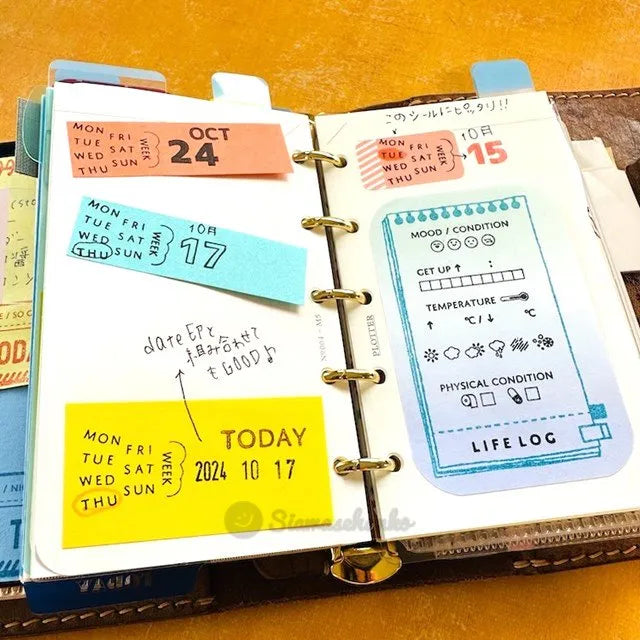 MON FRI
TUE SAT
WED SUN
THU
WEEK
OCT
24
MON
TUE FRI
WED SAT
THU SUN
WEEK
10月
17
dateEPと
組み合わせて
もGOOD♪
MON FRI
TUE SAT
WED SUN
THU
WEEK
TODAY
2024 10 17
PLOTTER
このシールにピッタリ!!
MON FRI
TUE SAT
WED SUN
THU
WEEK
10月
15
MOOD / CONDITION
GET UP ↑ :
TEMPERATURE
↑ ℃/↓ ℃
PHYSICAL CONDITION
LIFE LOG